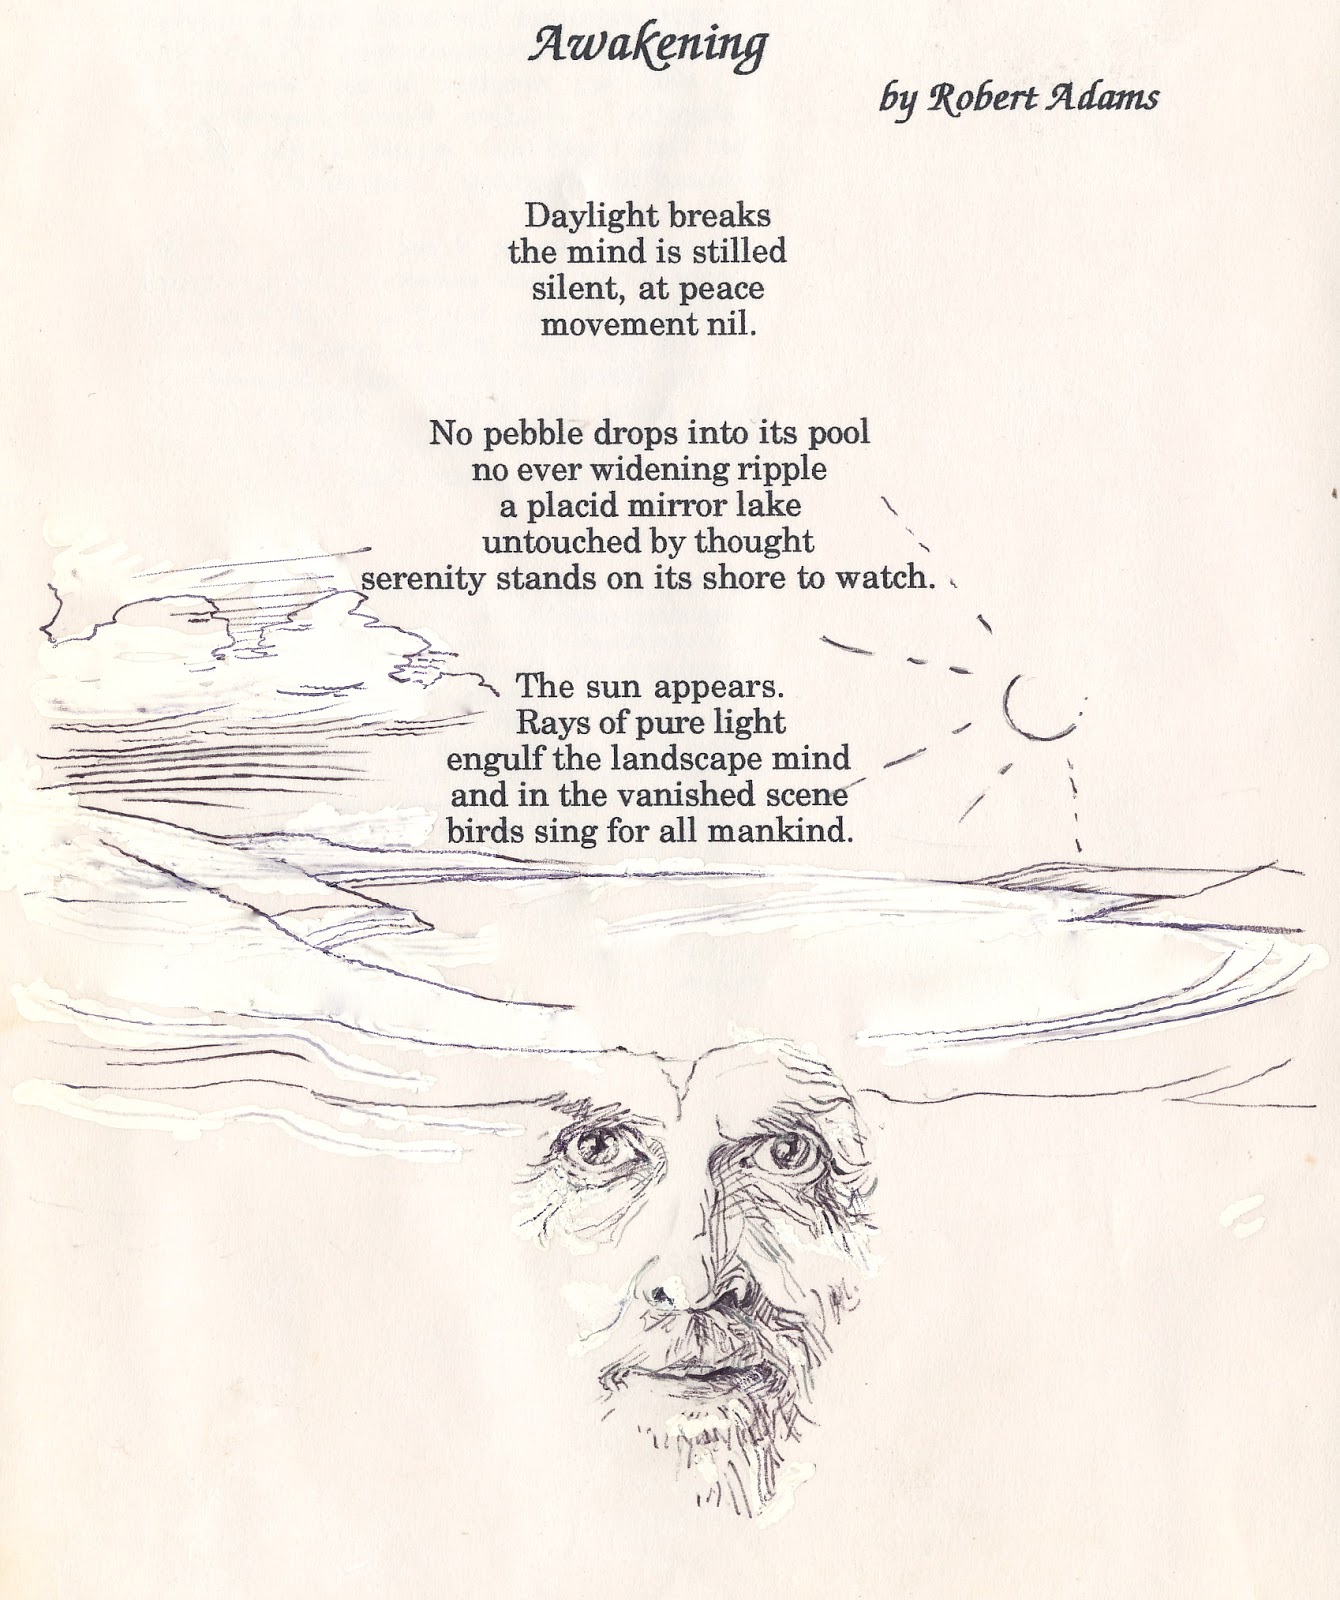 Awakening
by Robert Adams
Daylight breaks
the mind is stilled
silent, at peace
movement nil.
No pebble drops into its pool
no ever widening ripple
a placid mirror lake
untouched by thought
serenity stands on its shore to watch.
The sun appears.
Rays of pure light
engulf the landscape mind
and in the vanished scene
birds sing for all mankind.